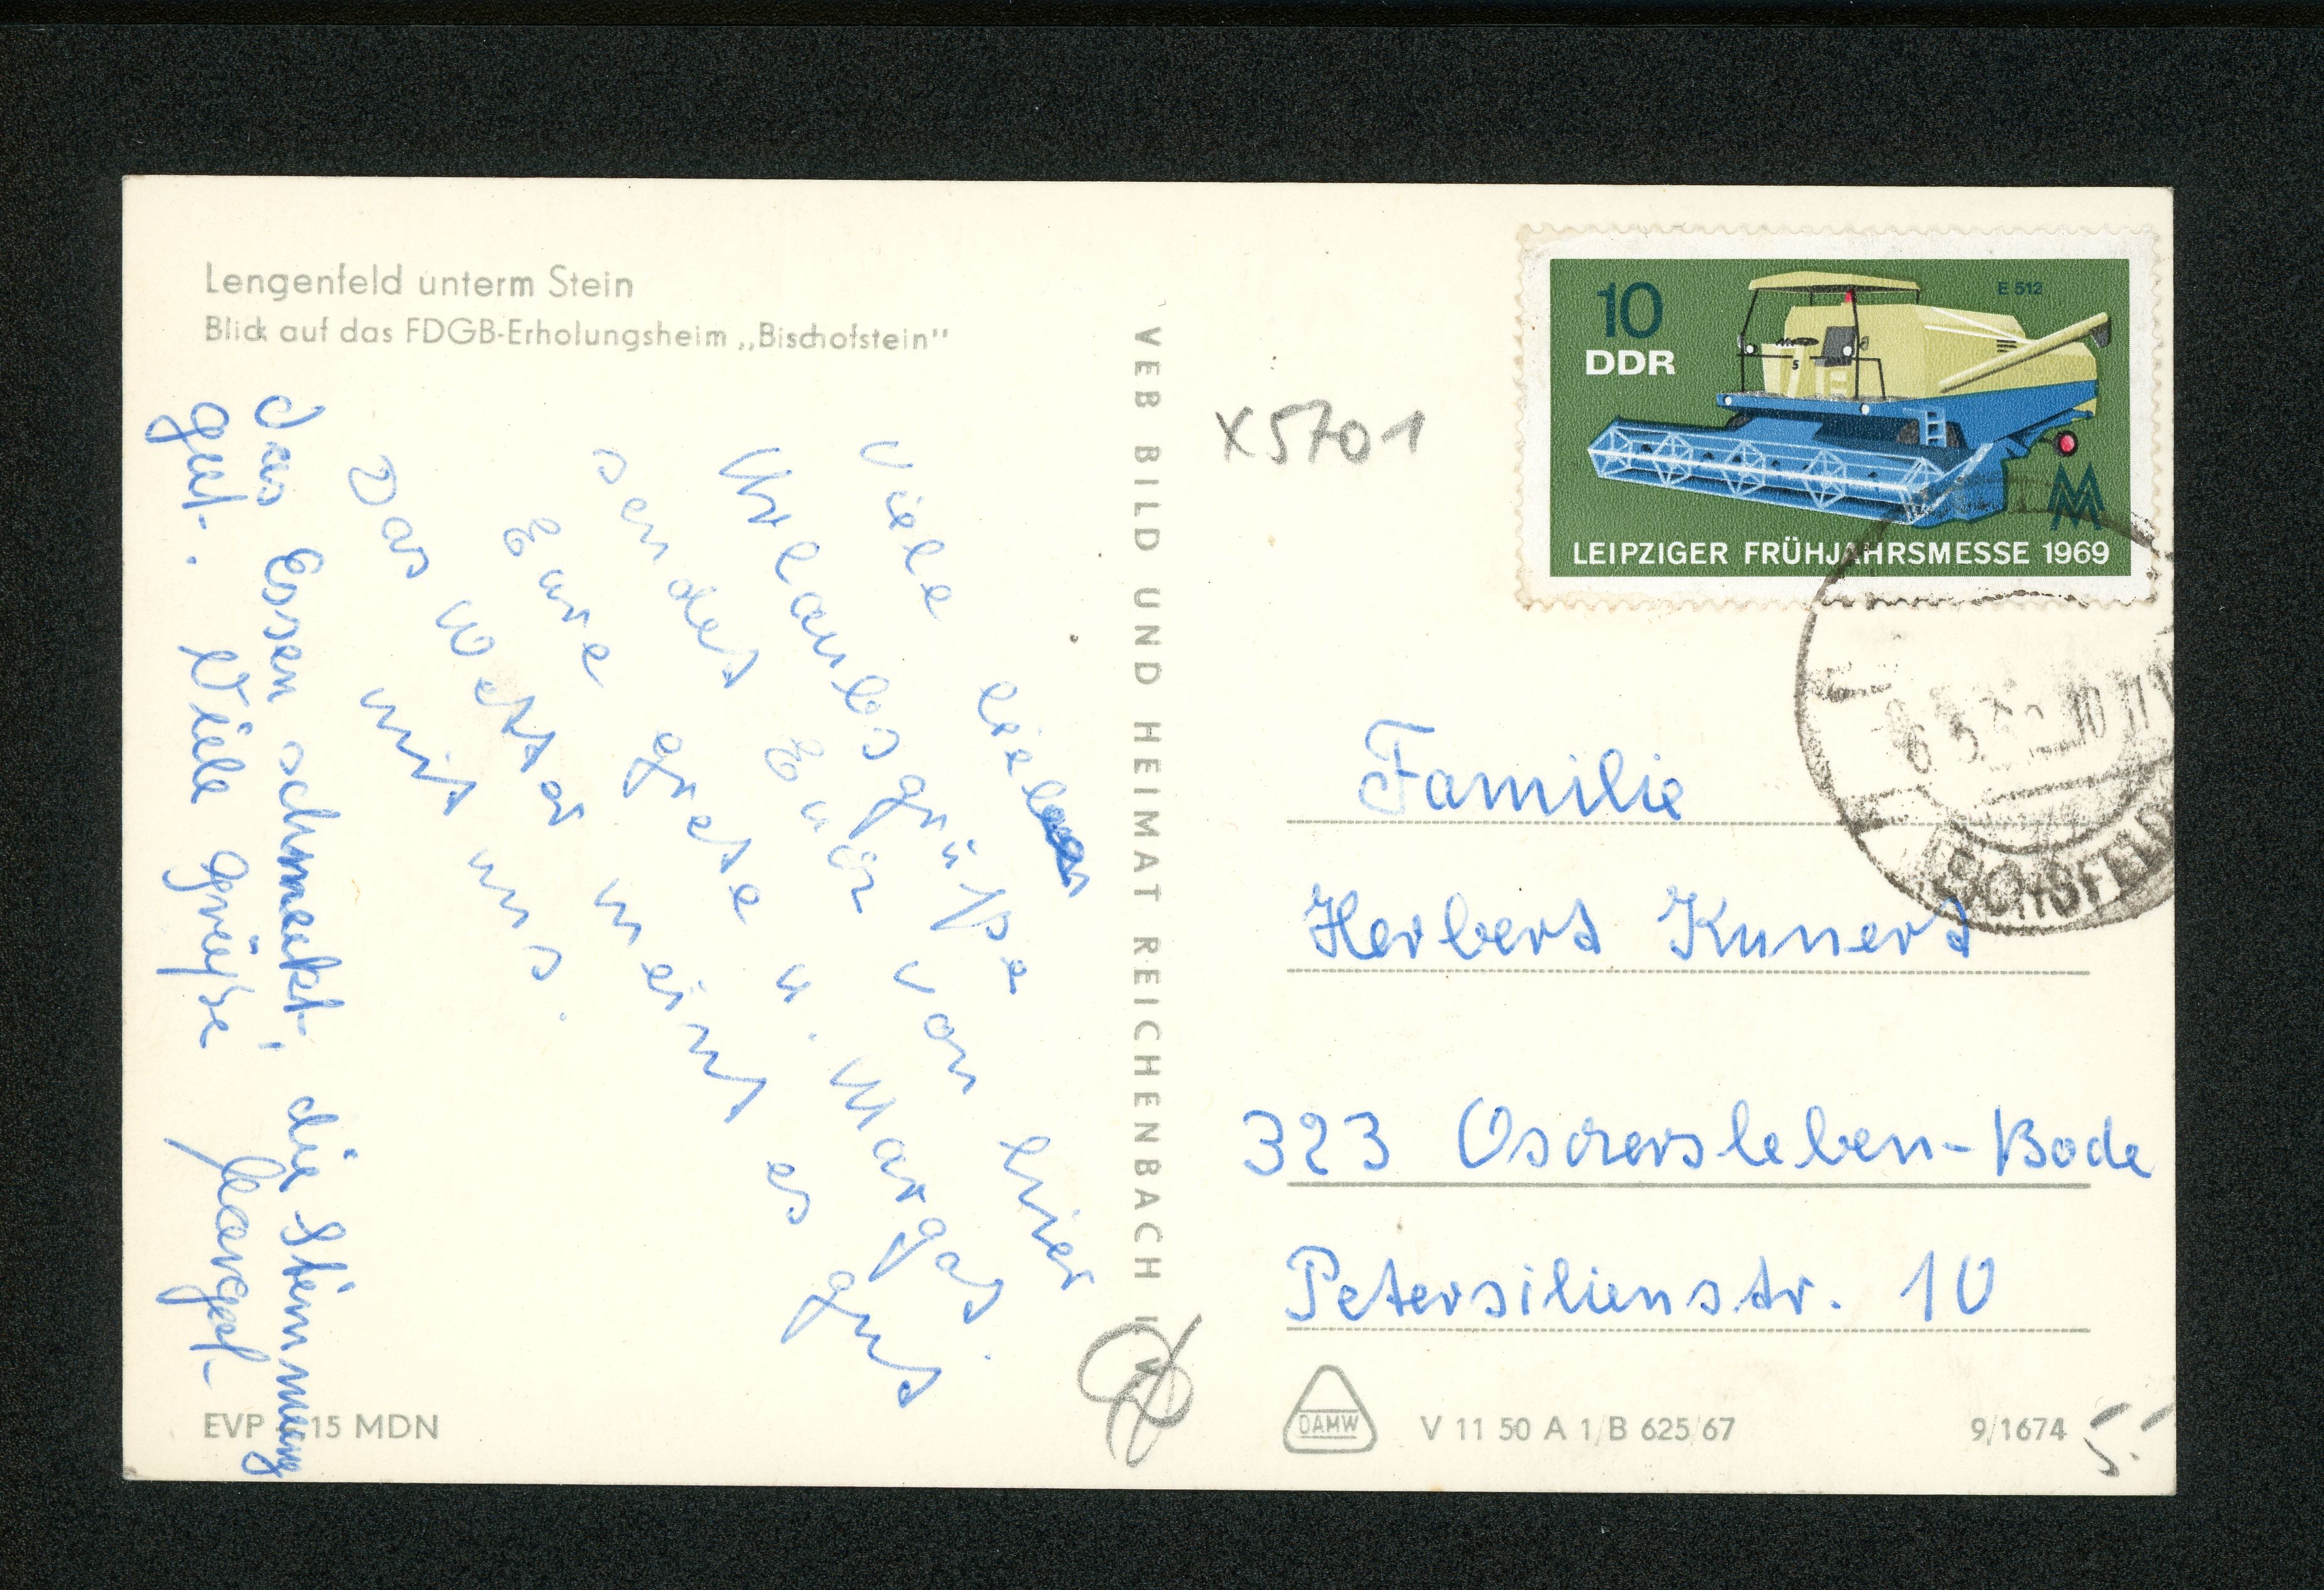 Lengenfeld unterm Stein
Blick auf das FDGB-Erholungsheim „Bischofstein"
Viele lieben
Urlaubsgrüße
sendet Euch von hier
Eure Grete u. Margot.
Das Wetter meint es gut
mit uns.
Das Essen schmeckt, die Stimmung
gut. Viele Grüße Margot
EVP 15 MDN
VEB BILD UND HEIMAT REICHENBACH I V
X5701
10
DDR
E 512
LEIPZIGER FRÜHJAHRSMESSE 1969
Familie
Herbert Kunert
323 Oschersleben-Bode
Petersilienstr. 10
DAMW
V 11 50 A 1/B 625/67
9/1674